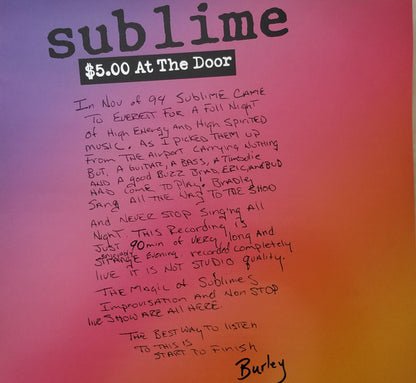 sublime
$5.00 At The Door
In Nov of 94 SUBLIME CAME
TO EVERETT FOR A Full Night
of High Energy AND High Spirited
music. As I picked THEM up
From THE Airport carrying NOTHING
But, A GUITAR, A BASS, A
AND A good Buzz BRAD, ERIC, AND BUD
HAD COME TO PlAY! BRADley
Sang All THE WAY TO THE
AND NEVER STOP SiNging All
Night. THIS Recording is
JUST 90min of VERY long and
STRANGE Evening. recorded completely
live IT IS NOT STUDIO quality.
THE MAgic of Sublimes
Improvisation AND Non STOP
live SHOW ARE All HERE.
THE BEST WAY TO listen
TO THIS is
START TO Finish
Burley